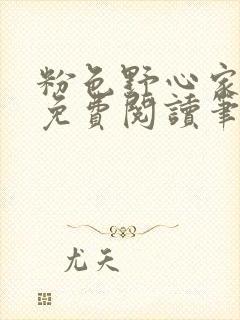 粉色野心家
免費閱讀筆
尤天